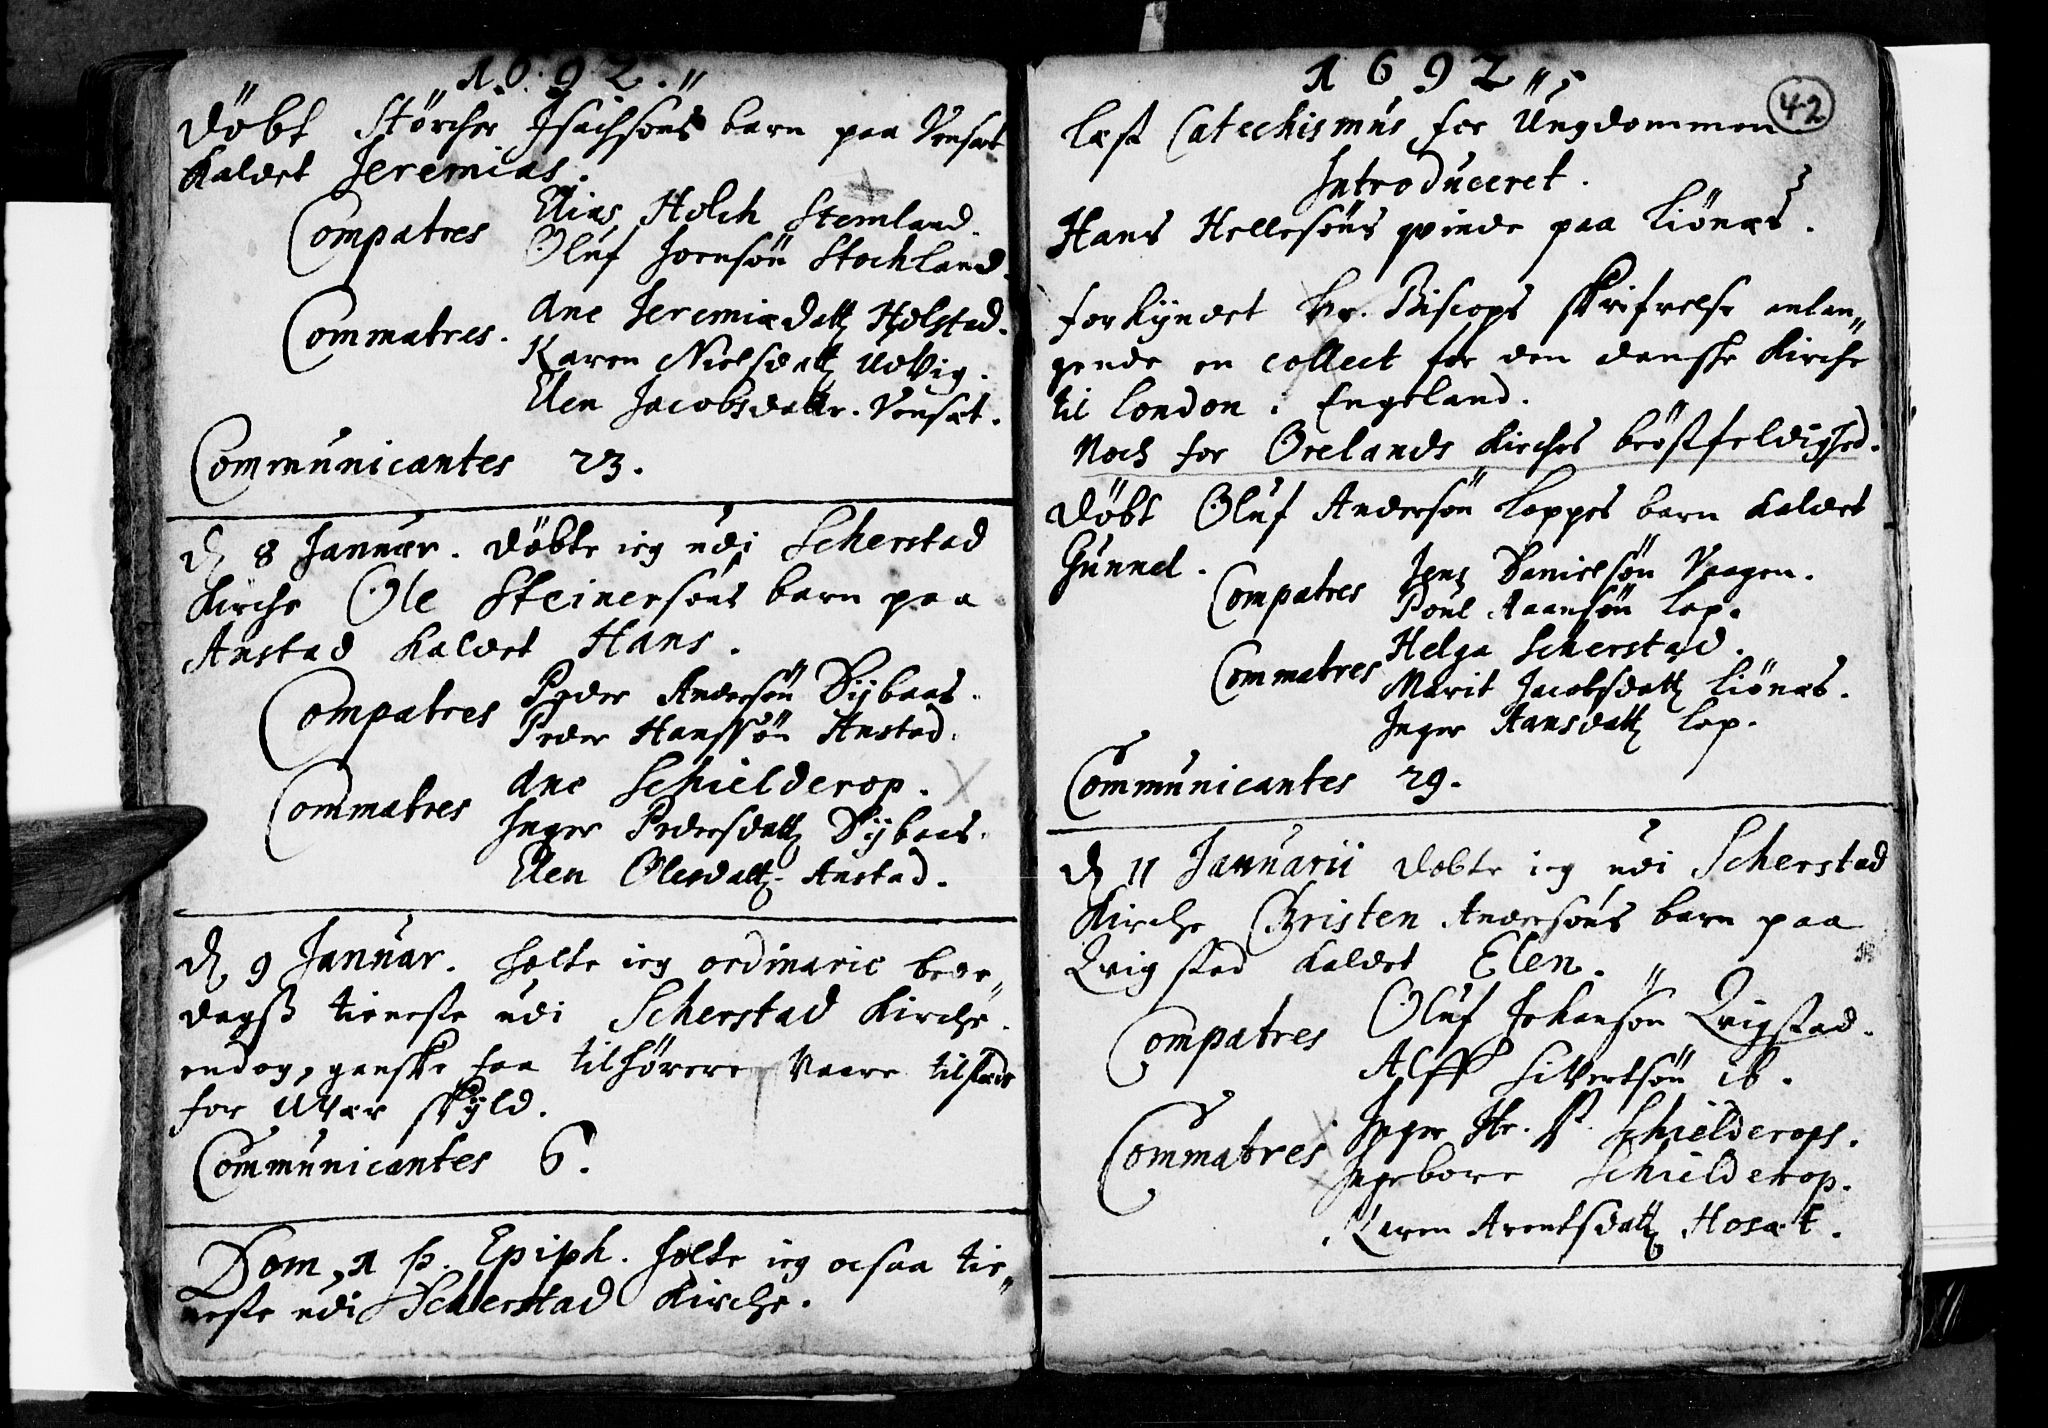 1692.
Döbt Störcher Isachsöns barn paa Vensæt
kaldet Jeremias.
Compatres Elias Holch Stemland.
Oluf Joensön Stochland.
Commatres. Ane Jeremiædatt Holstad.
Karen Nielsdatt Udvig.
Elen Jacobsdattr. Vensæt.
Communicantes 23.
d 8 Januar. döbte ieg udi Scherstad
Kirche Ole Steinersöns barn paa
Anstad kaldet Hans.
Compatres Peder Andersön Dybaas.
Peder Hanssön Anstad.
Commatres Ane Schielderop.
Inger Pedersdatt Dybaas.
Elen Olesdatt Anstad.
d 9 Januar. holte ieg ordinarie bede-
dagss tieneste udi Scherstad Kirche.
endog, ganske faa tilhörere vaare tilstæde
for Uvær skyld.
Communicantes 6.
Dom, 1 p. Epiph. holte ieg ocsaa tie-
neste udi Scherstad Kirche.
1692
42
læst Catechismus for Ungdommen
Introduceret.
Hans Hellesöns qvinde paa Liönæs.
forkyndet hr. Biscops skrifvelse anlan-
gende en collect for den danske Kirche
til London i Engeland.
Noch for Örelands Kirches bröstfeldighed.
Döbt Oluf Andersön Lappes barn kaldet
Gunnel.
Compatres Jens Danielsön Vaagen.
Poul Aaansön Lap.
Commatres Helga Scherstad.
Marit Jacobsdatt Liönæs.
Inger Aansdatt Lap.
Communicantes 29.
d 11 Januarii dobte ieg udi Scherstad
Kirche Christen Andersöns barn paa
Qvigstad kaldet Elen.
Compatres Oluf Johansön Qvigstad.
Alff Sivertsön ib.
Commatres Inger Hr. P. Schielderops.
Ingebore Schielderop.
Karen Arentsdatt Hosæt.